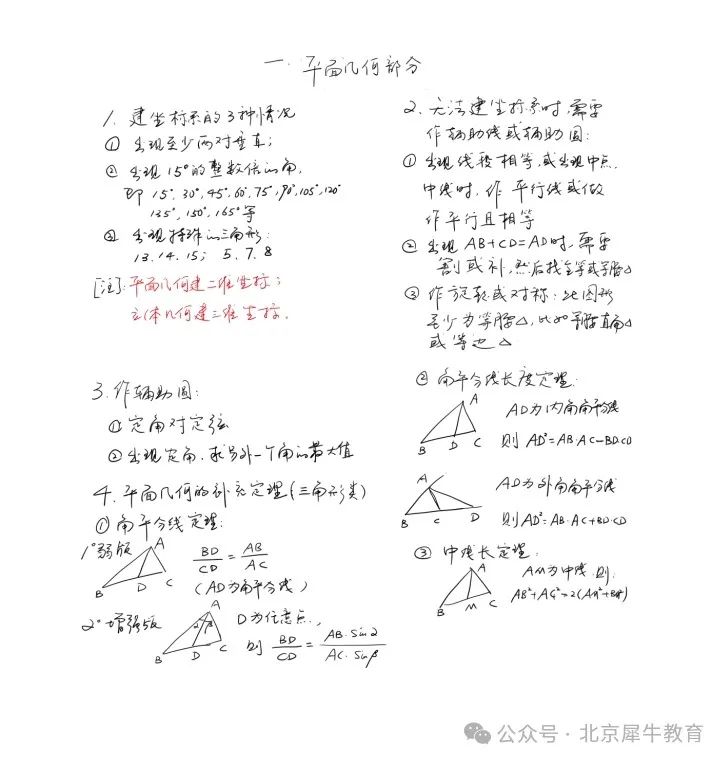 一. 平面几何部分
1. 建坐标系的3种情况
① 出现至少两对垂直;
② 出现15°的整数倍的角,
即 15°, 30°, 45°, 60°, 75°, 90°, 105°, 120°
135°, 150°, 165° 等
③ 出现特殊的三角形:
13. 14. 15; 5. 7. 8
[注]: 平面几何建二维坐标;
立体几何建三维坐标.
3. 作辅助圆:
① 定角对定弦
② 出现定角, 求另外一个角的最大值
4. 平面几何的补充定理(三角形类)
① 角平分线定理:
1° 弱版
A
B D C
BD/CD = AB/AC
(AD为角平分线)
2° 增强版
A
α β
B D C
D为任意点,
则 BD/CD = AB·sinα/AC·sinβ
2. 无法建坐标系时, 需要
作辅助线或辅助圆:
① 出现线段相等, 或出现中点,
中线时, 作平行线或做
作平行且相等
② 出现 AB+CD=AD时, 需要
割或补, 然后找全等或等腰△
③ 作旋转或对称: 此图形
至少为等腰△, 比如等腰直角△
或等边△
② 角平分线长度定理:
A
B D C
AD为内角角平分线
则 AD²=AB·AC-BD·CD
A
B C D
AD为外角角平分线
则AD²=AB·AC+BD·CD
③ 中线长定理:
A
B M C
AM为中线, 则:
AB²+AC²=2(AM²+BM²)
公众号·北京犀牛教育